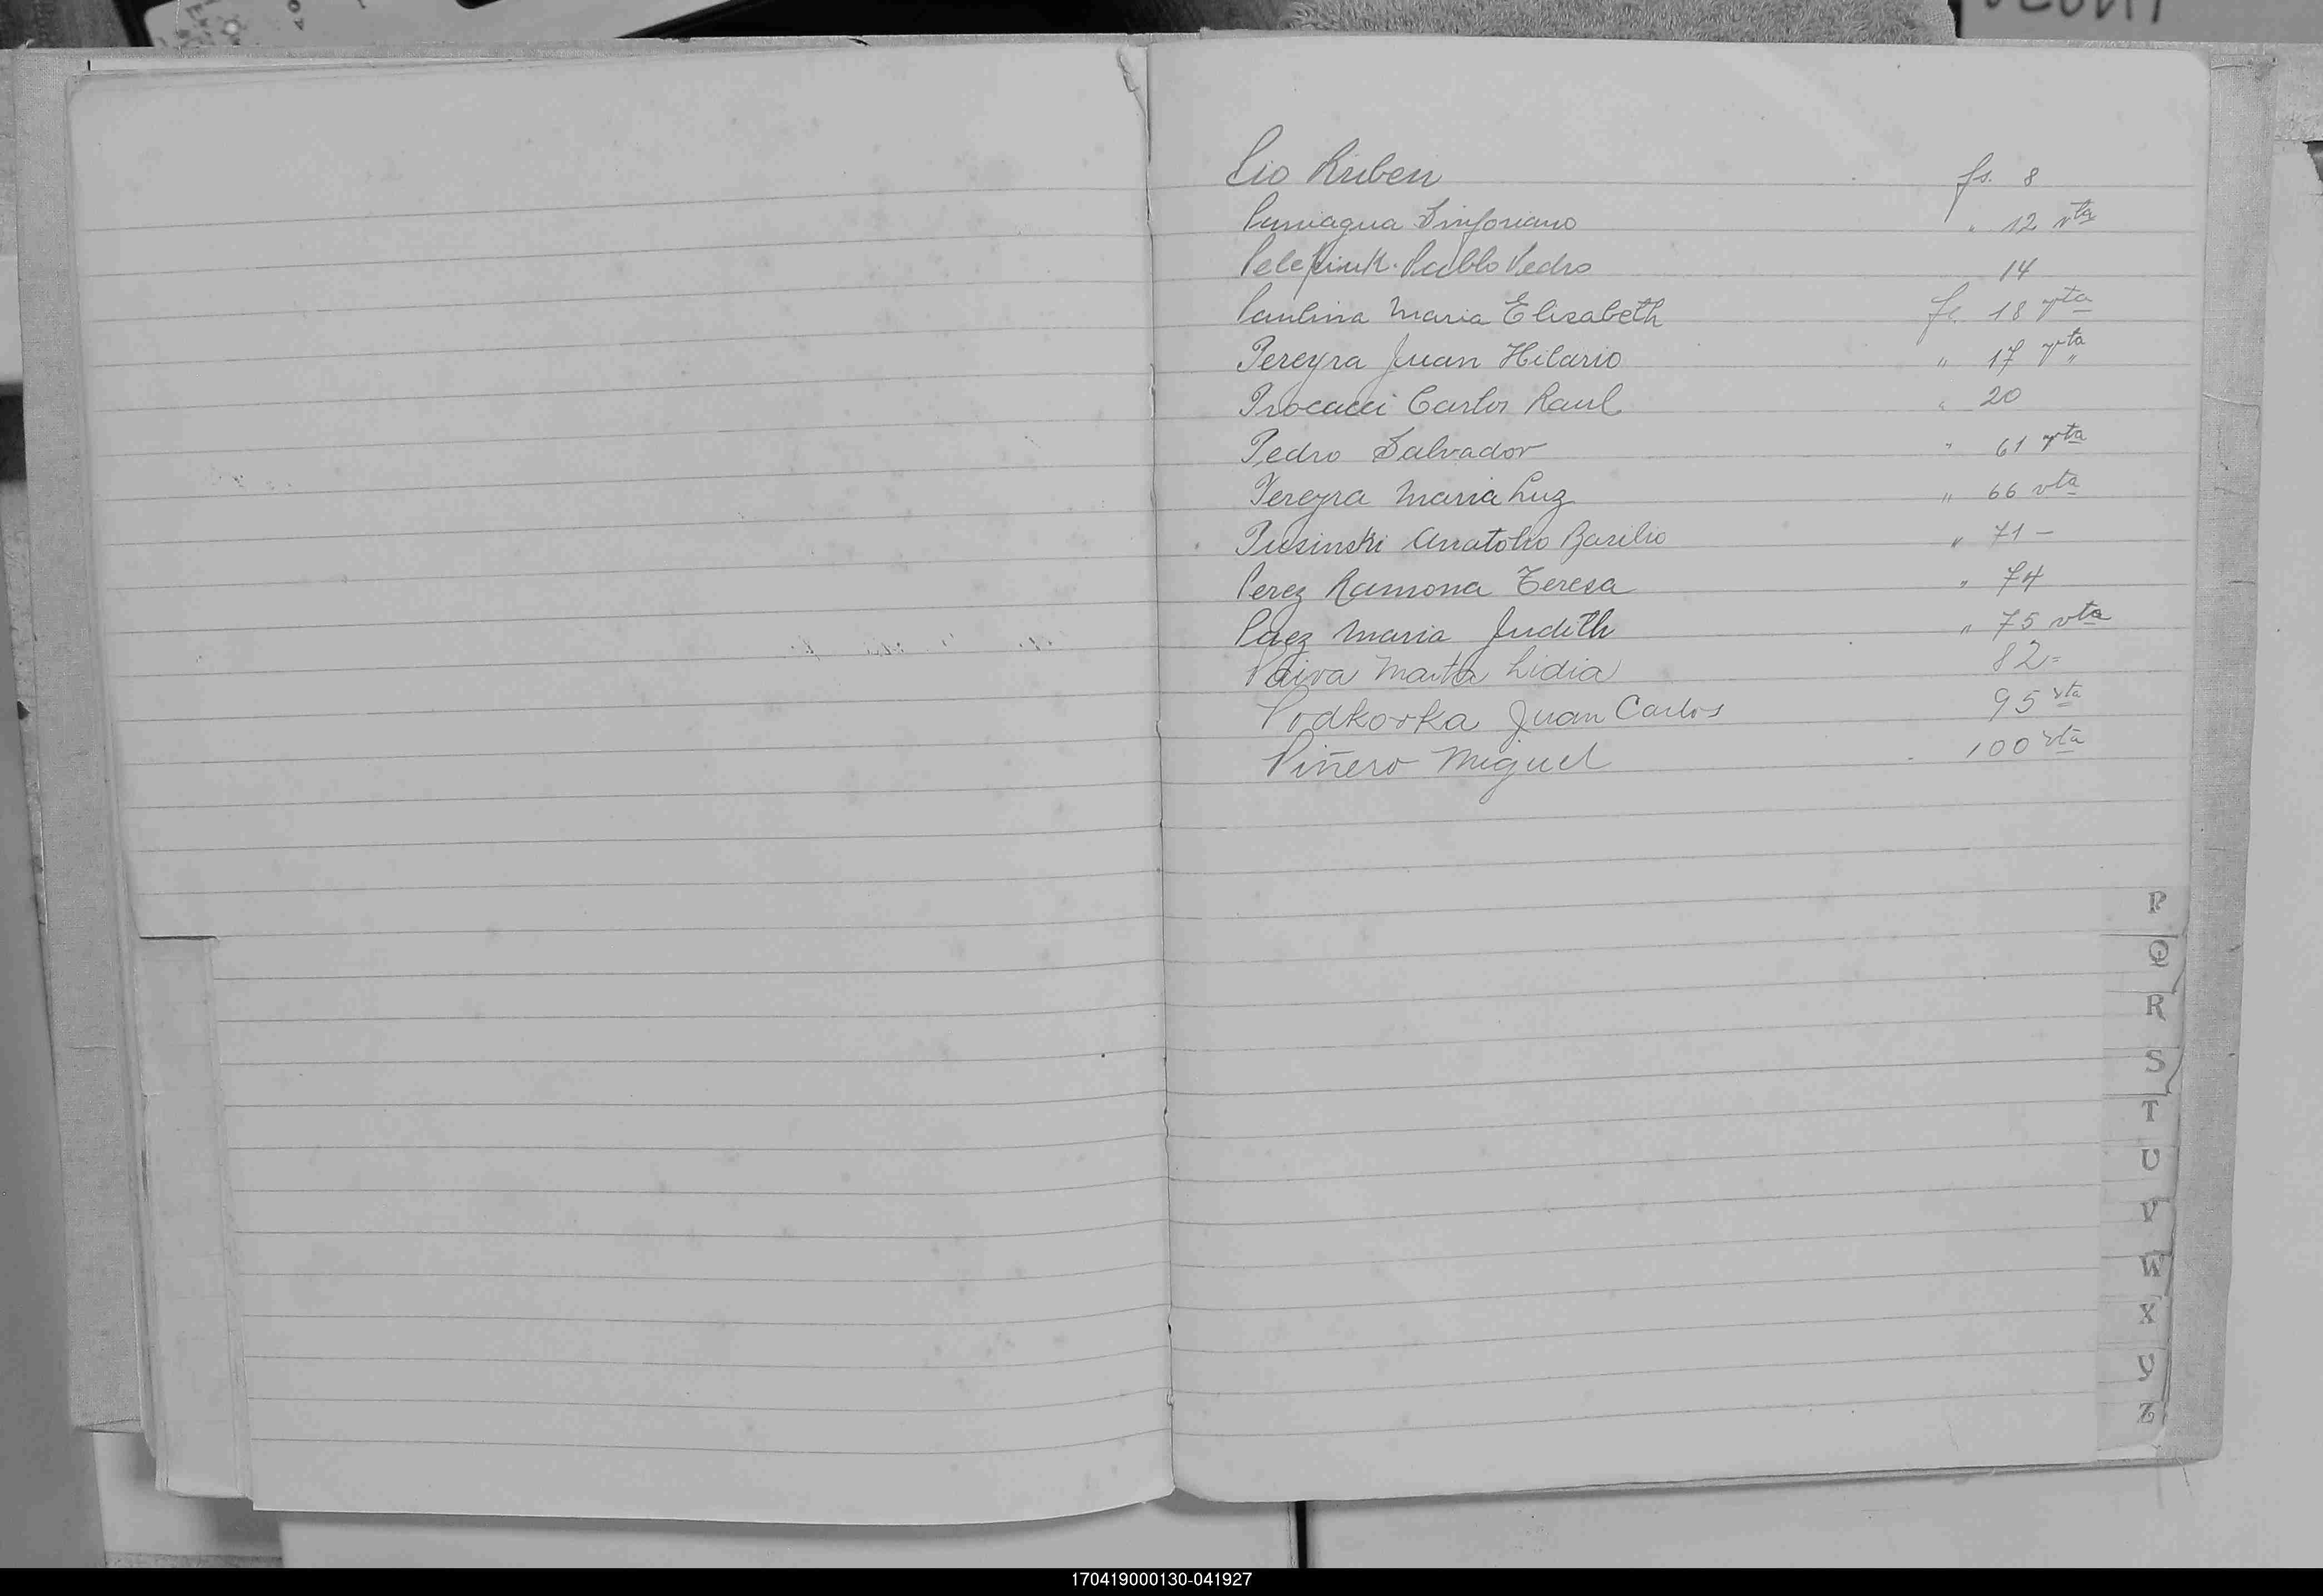 Pio Ruben fs. 8
Paniagua Sinforiano " 12 vta
Pelepiuk Pablo Pedro 14
Paulina Maria Elisabeth fs. 18 vta
Pereyra Juan Hilario " 17 vta "
Procacci Carlos Raul " 20
Pedro Salvador " 61 vta
Pereyra Maria Luz " 66 vta
Pusinski Anatolio Basilio " 71 -
Perez Ramona Teresa " 74
Paez Maria Judith " 75 vta
Paiva Marta Lidia 82=
Podkorka Juan Carlos 95 vta
Piñero Miguel 100 vta
P
Q
R
S
T
U
V
W
X
Y
Z
170419000130-041927